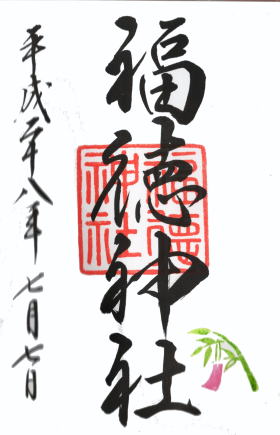 福徳神社
福徳神社
平成二十八年七月七日